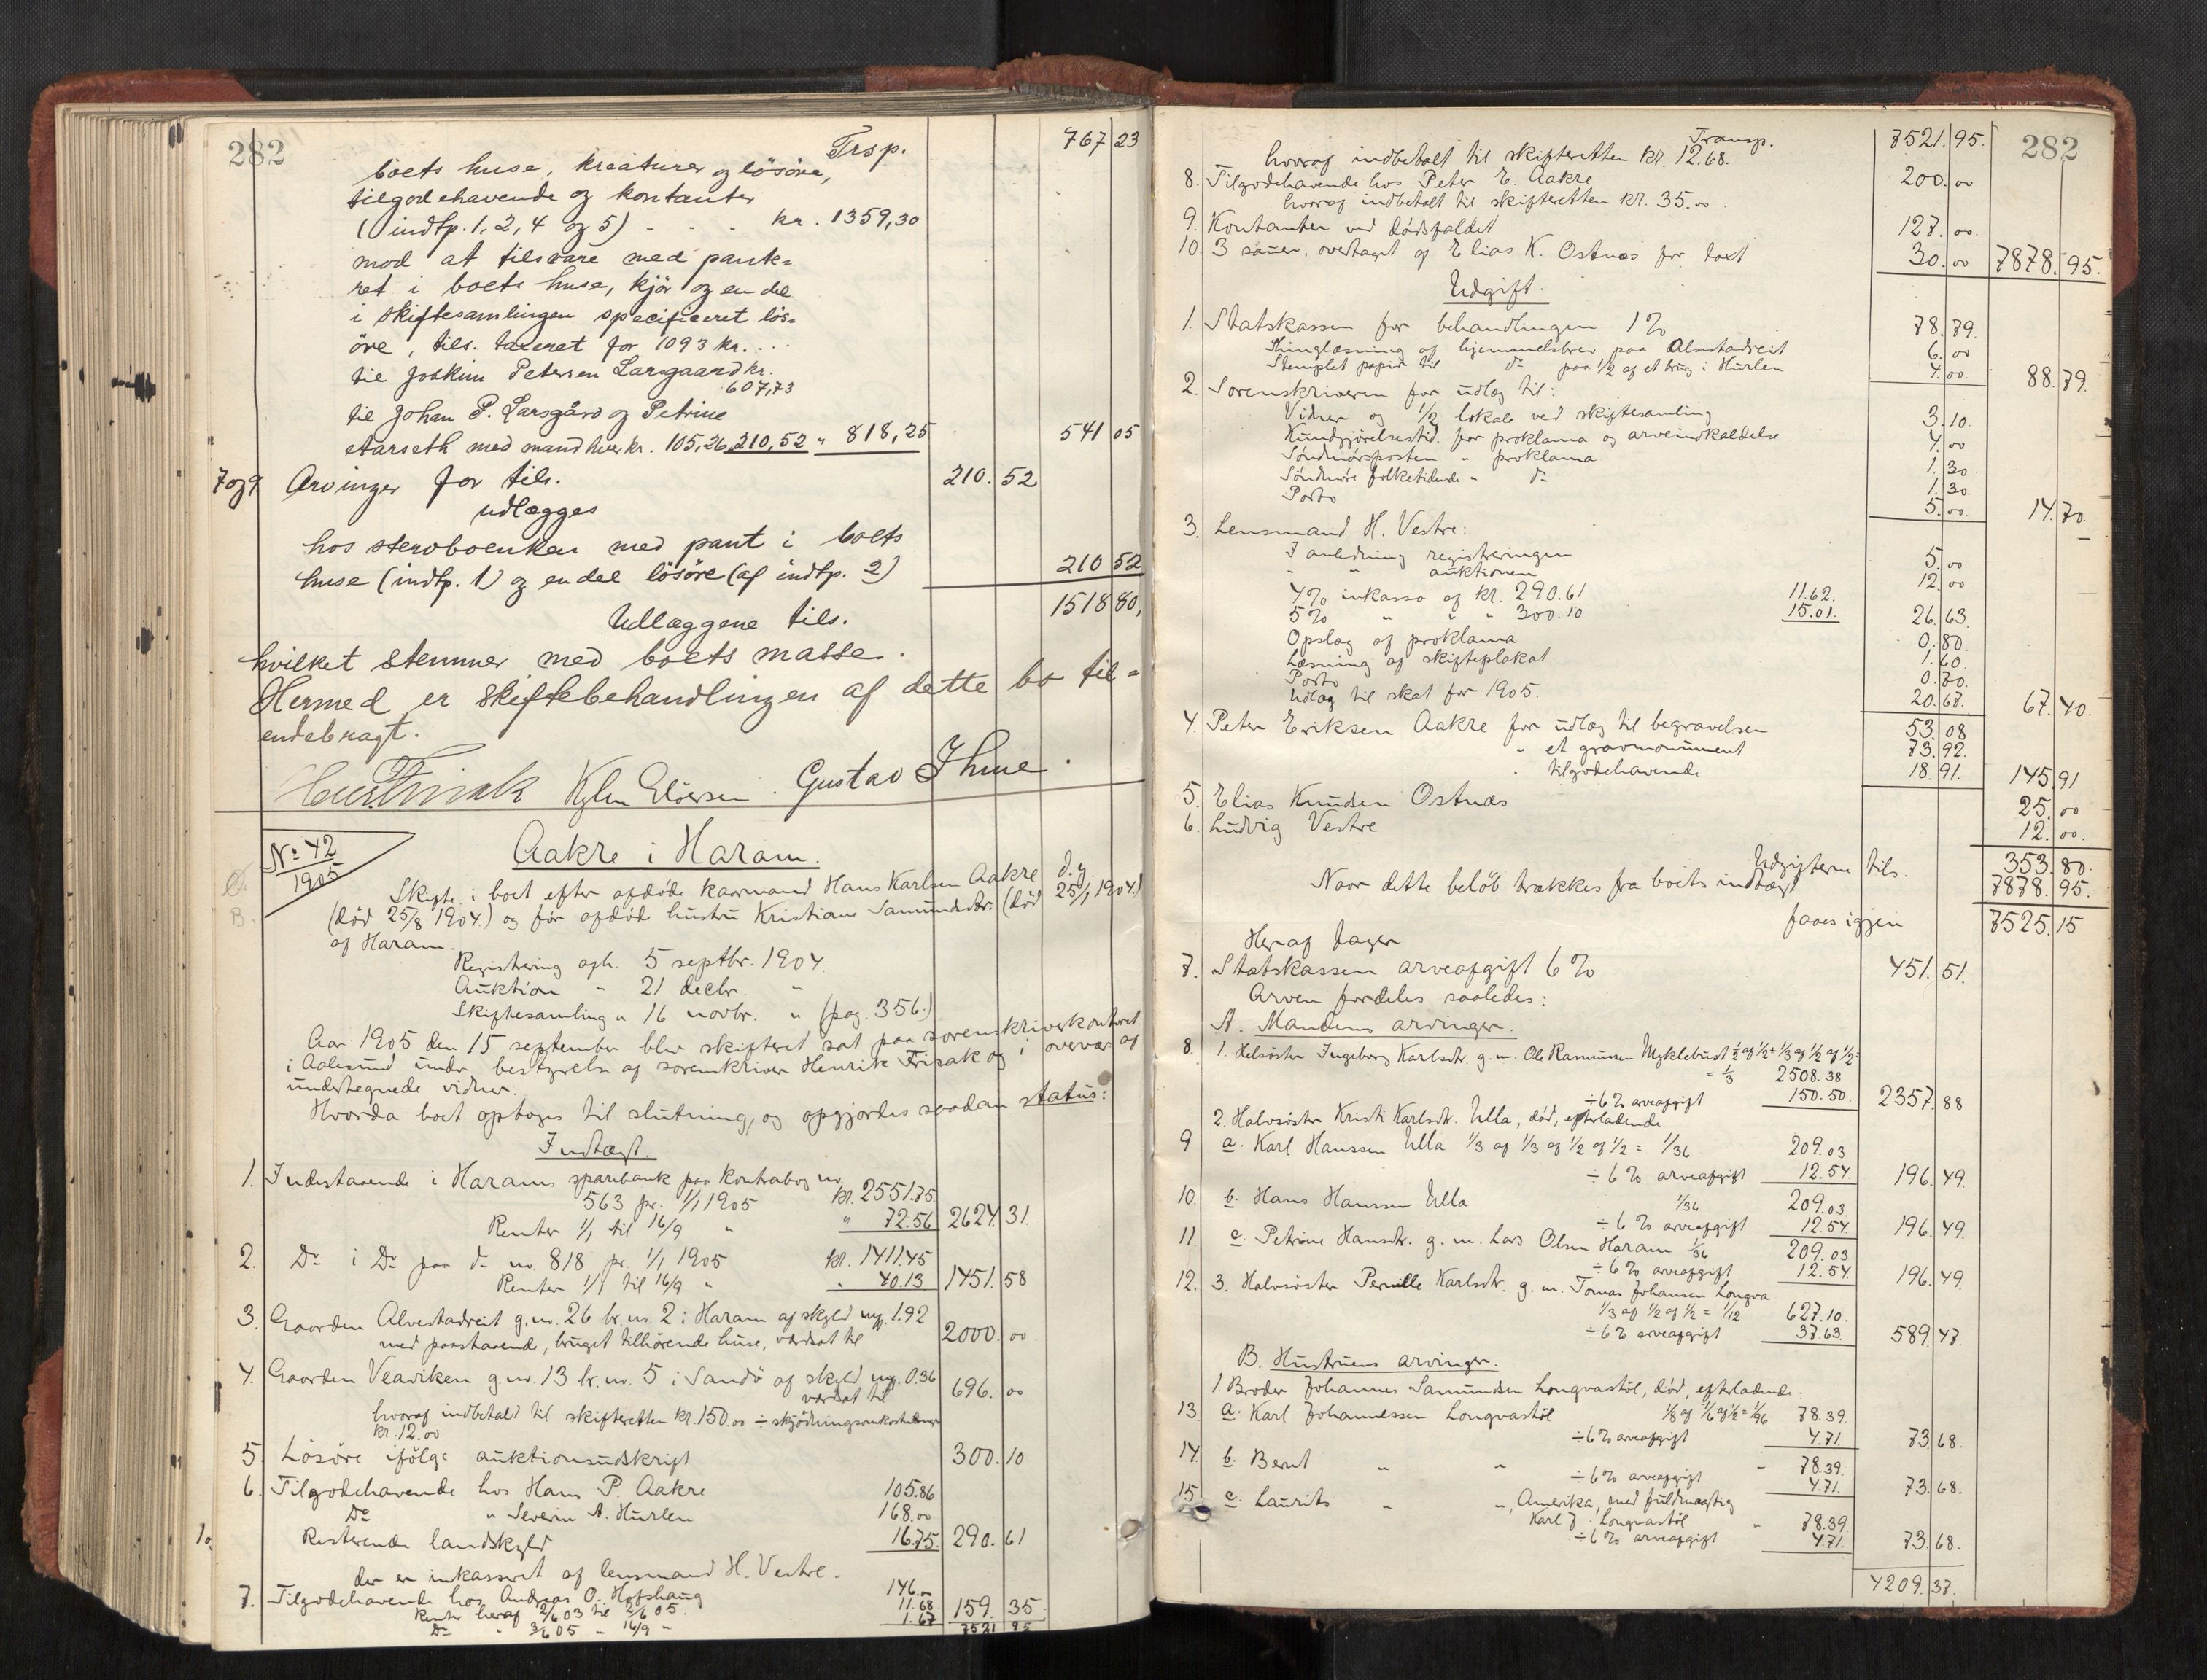 282
Trsp. 767 23
boets huse, kreaturer og lösöre,
tilgodehavende og kontanter
(indtp. 1, 2, 4 og 5) - - - kr. 1359,30
mod at tilsvare med pante-
ret i boets huse, kjör og en del
i skiftesamlingen specificeret lös-
öre, tils. taxeret for 1093 kr. ...
til Joakim Petersen Larsgaard kr.
607,73
til Johan P. Larsgård og Petrine
Aarseth med mand hver kr. 105,26 210,52 " 818,25 541 05
7 og 9 Arvinger for tils. 210. 52
udlægges
hos stervboenken med pant i boets
huse (indtp. 1) og en del lösöre (af indtp. 2) 210 52
Udlæggene tils. 1518 80,
hvilket stemmer med boets masse.
Hermed er skiftebehandlingen af dette bo til-
endebragt.
Gustav Thue.
No 42
1905
Aakre i Haram.
Skifte i boet efter afdøde kaarmand Hans Karlsen Aakre d.y.
(død 25/8 1904.) og før afdød hustru Kristiane Samundsdtr. (død 25/1 1904.)
af Haram.
Registrering afh. 5 septbr. 1904.
Auktion " 21 decbr. "
Skiftesamling " 16 novbr. " (pag. 356.)
Aar 1905 den 15 september blev skifteret sat paa sorenskriverkontoret
i Aalesund under bestyrelse af sorenskriver Henrik Frisak og i overvær af
undertegnede vidner.
Hvorda boet optoges til slutning, og opgjordes saadan status:
Indtægt.
1. Indestaaende i Harams sparebank paa kontrabog no.
563 pr. 1/1 1905 kr. 2551.75
Renter 1/1 til 16/9 " " 72.56 2624. 31.
2. Do i Do paa do no. 818 pr. 1/1 1905 kr. 1411.45
Renter 1/1 til 16/9 " " 40.13 1451. 58
3. Gaarden Alvestadreit g.no. 26 br. no. 2 i Haram af skyld mg. 1.92
med paastaaende, bruget tilhørende huse, værdsat til 2000. 00
4. Gaarden Veaviken g.no. 13 br. no. 5 i Sandö af skyld mg. 0.36
værdsat til 696. 00
hvoraf indbetalt til skifteretten kr. 150.00 ÷ skjødningsomkostninger
kr. 12.00
5. Løsøre ifølge auktionsudskrift 300. 10
6. Tilgodehavende hos Hans P. Aakre 105.86
Do " Severin A. Hurlen 168.00
Resterende landskyld 16.75 290. 61
der er inkasseret af lensmand H. Vestre.
7. Tilgodehavende hos Andreas O. Hofshaug 146.00
Renter heraf 2/6 03 til 2/6 05. 11.68 159. 35
Do " 2/6 05 - 16/9 " 1.67 7521 95
Transp. 7521. 95. 282
hvoraf indbetalt til skifteretten kr. 12.68.
8. Tilgodehavende hos Peter E. Aakre 200. 00
hvoraf indbetalt til skifteretten kr. 35.00.
9. Kontanter ved dødsfaldet 127. 00.
10. 3 sauer, overtaget af Elias K. Ostnæs for taxt 30. 00 7878. 95.
Udgift.
1. Statskassen for behandlingen 1 % 78. 79.
Thinglæsning af hjemmelsbrev paa Alvestadreit 6. 00
Stemplet papir til do paa 1/2 af et brug i Hurlen 4. 00. 88. 79.
2. Sorenskriveren for udlæg til:
Vidner og 1/2 lokale ved skiftesamling 3. 10.
Kundgjørelsestid. for proklama og arveindkaldelse 4. 00
Søndmørsposten " proklama 1. 30
Søndmøre folketidende " do 1. 30.
Porto 5. 00. 14. 70.
3. Lensmand H. Vestre:
I anledning registreringen 5. 00
" " auktionen 12. 00
4% inkasso af kr. 290.61 11.62.
5% " " " 300.10 15.01. 26. 63.
Opslag af proklama 0. 80.
Læsning af skifteplakat 1. 60.
Porto 0. 70.
Udlæg til skat for 1905. 20. 67. 67. 40.
4. Peter Eriksen Aakre for udlæg til begravelsen 53. 08
" et gravmonument 73. 92.
" tilgodehavende 18. 91. 145. 91
5. Elias Knudsen Ostnæs 25. 00
6. Ludvig Vestre 12. 00.
Udgifterne tils. 353. 80.
Naar dette beløb trækkes fra boets indtægt 7878. 95.
faaes igjen 7525. 15
Heraf tager
7. Statskassen arveafgift 6 % 451. 51.
Arven fordeles saaledes:
A. Mandens arvinger.
8. 1. Helsøster Ingeborg Karlsdtr. g. m. Ole Rasmussen Myklebust 1/2 af 1/2 + 1/3 af 1/2 af 1/2 =
= 1/3 2508.38
÷ 6% arveafgift 150.50. 2357. 88
2. Halvsøster Kristi Karlsdtr. Ulla, død, efterladende
9 a. Karl Hanssen Ulla 1/3 af 1/3 af 1/2 af 1/2 = 1/36 209.03
÷ 6 % arveafgift 12.54. 196. 49.
10. b. Hans Hanssen Ulla 1/36 209.03.
÷ 6 % arveafgift 12.54. 196. 49.
11. c. Petrine Hansdtr. g. m. Lars Olsen Haram 1/36 209.03
÷ 6% arveafgift 12.54. 196. 49.
12. 3. Halvsøster Pernille Karlsdtr. g. m. Tomas Johansen Longva
1/3 af 1/2 af 1/2 = 1/12 627.10.
÷ 6% arveafgift 37.63. 589. 47.
B. Hustruens arvinger.
1. Broder Johannes Samundsen Longvastöl, død, efterladende:
13. a. Karl Johannessen Longvastöl 1/8 af 1/6 af 1/2 = 1/96 78.39.
÷ 6% arveafgift 4.71. 73. 68.
14. b. Bernt " " " 78.39.
÷ 6% arveafgift 4.71. 73. 68.
15. c. Laurits " ", Amerika, med fuldmægtig
Karl J. Longvastöl " 78.39.
÷ 6% arveafgift 4.71. 73. 68.
4209. 37.